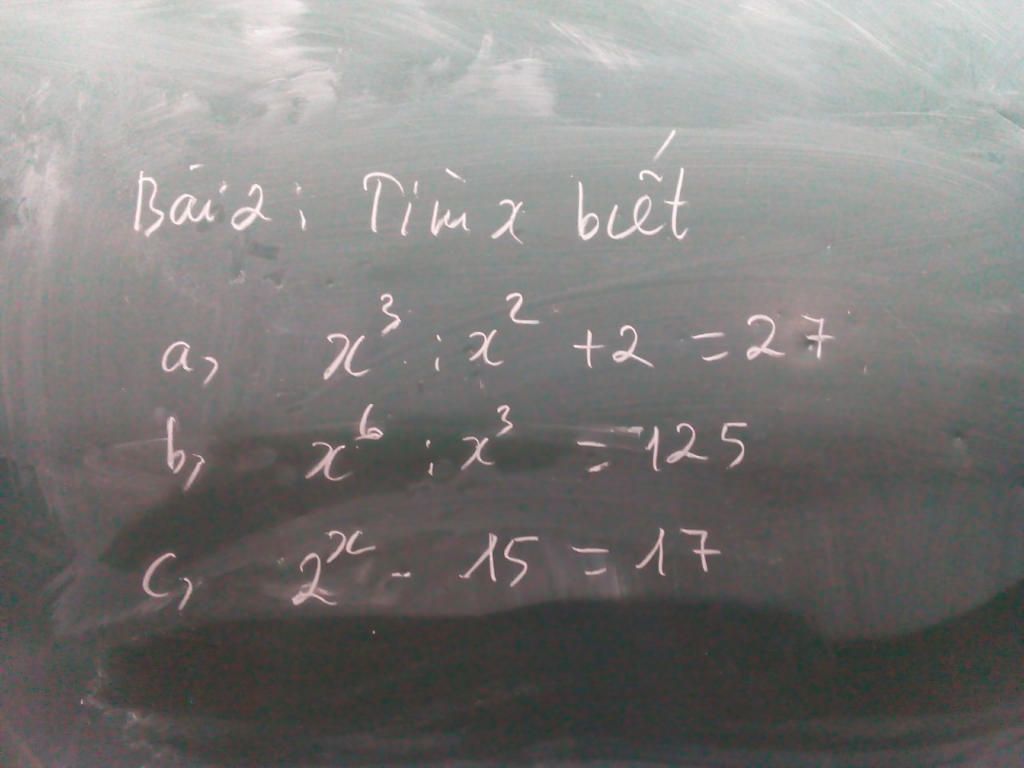 Bài 2: Tìm x biết
a, x³ : x² + 2 = 27
b, x⁶ : x³ = 125
c, 2ˣ - 15 = 17